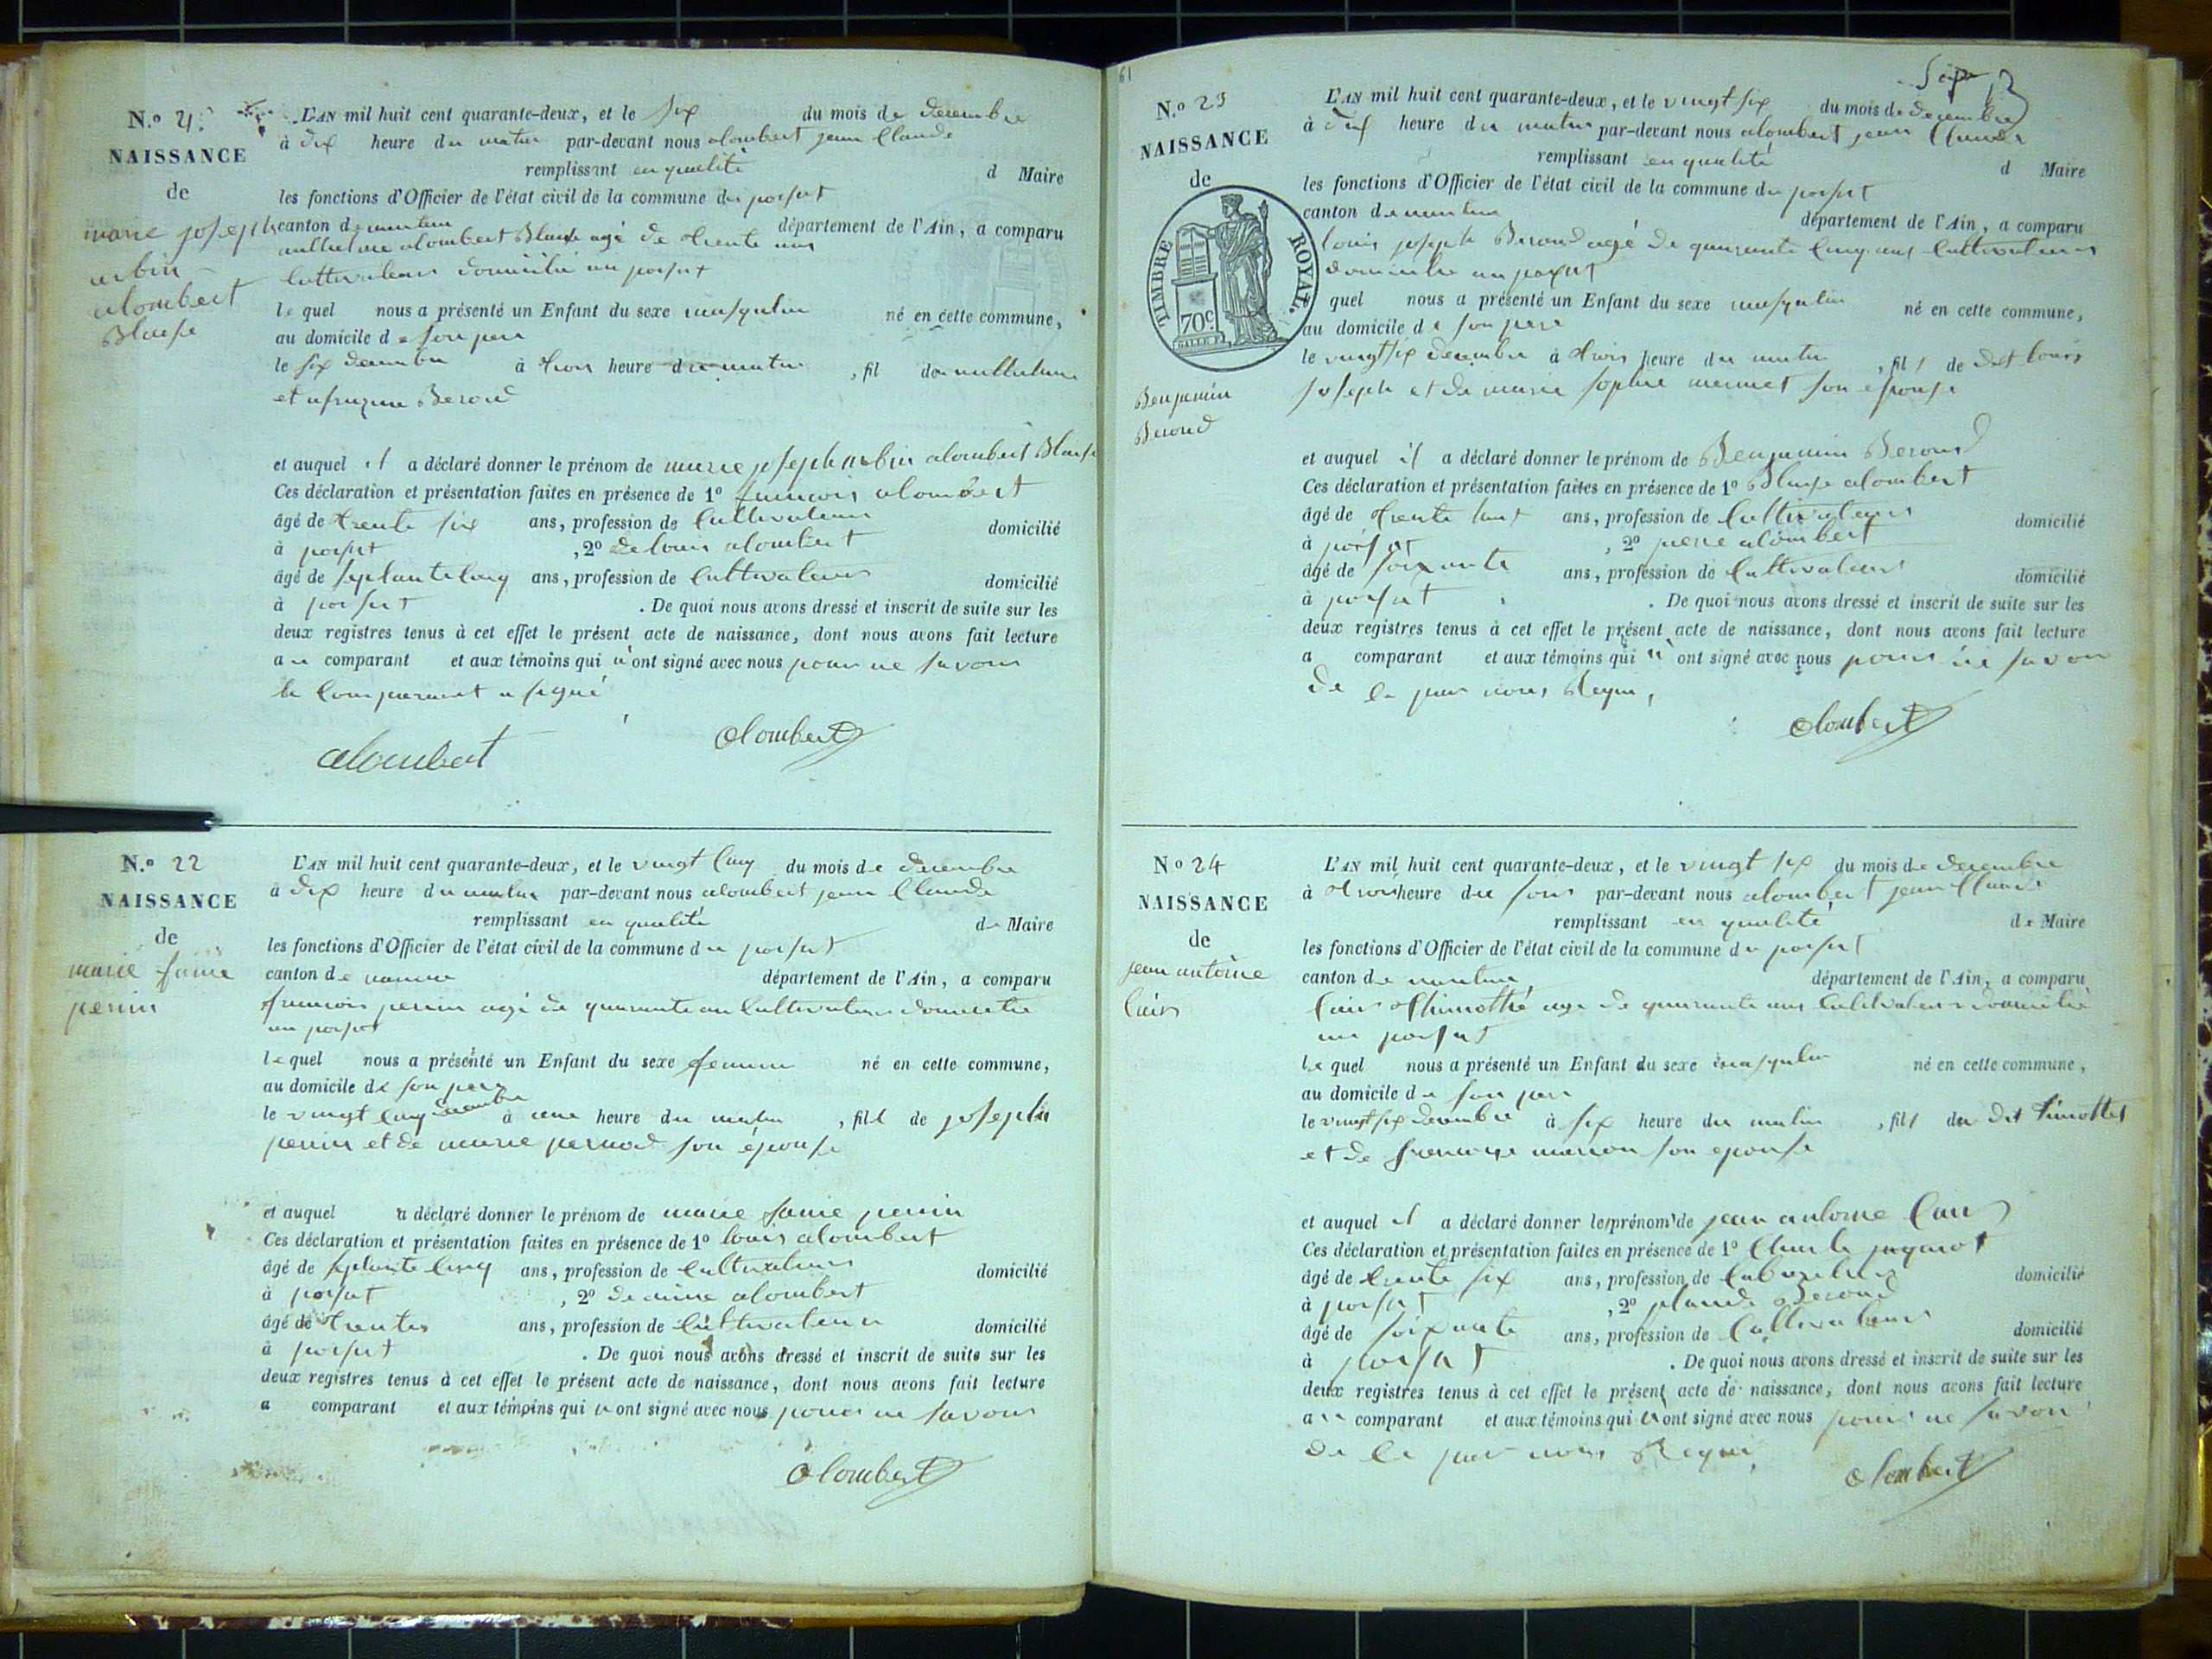 N.o 21
NAISSANCE
de
marie joseph
arbin
alombert
Blaise
L'AN mil huit cent quarante-deux, et le six du mois de decembre
à dix heure du matin par-devant nous alombert jean Claude
remplissant en qualité d Maire
les fonctions d'Officier de l'état civil de la commune du poisat
canton de nantua département de l'Ain, a comparu
alombert Blaise agé de trente ans
Cultivateur domicilié au poisat
le quel nous a présenté un Enfant du sexe masqulin né en cette commune,
au domicile de son pere
le six decembre à trois heure du matin , fil de
et Beroud
et auquel il a déclaré donner le prénom de marie joseph arbin alombert Blaise
Ces déclaration et présentation faites en présence de 1o francois alombert
âgé de trente six ans, profession de Cultivateur domicilié
à poisat , 2o de louis alombert
âgé de septante cinq ans, profession de Cultivateur domicilié
à poisat . De quoi nous avons dressé et inscrit de suite sur les
deux registres tenus à cet effet le présent acte de naissance, dont nous avons fait lecture
au comparant et aux témoins qui n'ont signé avec nous pour ne savoir
le Comparant a signé
alombert
alombert
N.o 22
NAISSANCE
de
marie
perrin
L'AN mil huit cent quarante-deux, et le vingt cinq du mois de decembre
à dix heure du matin par-devant nous alombert jean Claude
remplissant en qualité de Maire
les fonctions d'Officier de l'état civil de la commune du poisat
canton de nantua département de l'Ain, a comparu
francois perrin agé de quarante an Cultivateur domicilié
au poisat
le quel nous a présenté un Enfant du sexe né en cette commune,
au domicile de son pere
le vingt cinq decembre à une heure du matin , fill de joseph
perrin et de marie son épouse
et auquel a déclaré donner le prénom de marie perrin
Ces déclaration et présentation faites en présence de 1o louis alombert
âgé de septante cinq ans, profession de Cultivateur domicilié
à poisat , 2o alombert
âgé de trente ans, profession de Cultivateur domicilié
à poisat . De quoi nous avons dressé et inscrit de suite sur les
deux registres tenus à cet effet le présent acte de naissance, dont nous avons fait lecture
a comparant et aux témoins qui n ont signé avec nous pour ne savoir
alombert
61
N.o 23
NAISSANCE
de
TIMBRE ROYAL.
70c
Benjamin
Beroud
L'AN mil huit cent quarante-deux, et le vingt six du mois de decembre
à dix heure du matin par-devant nous alombert jean Claude
remplissant en qualité d Maire
les fonctions d'Officier de l'état civil de la commune du poisat
canton de nantua département de l'Ain, a comparu
louis joseph Beroud agé de quarante cinq ans Cultivateur
domicilié au poisat
quel nous a présenté un Enfant du sexe masqulin né en cette commune,
au domicile de son pere
le vingt six decembre à trois heure du matin , fils de dit louis
joseph et de marie sophie mermet son épouse
et auquel il a déclaré donner le prénom de Benjamin Beroud
Ces déclaration et présentation faites en présence de 1o Blaise alombert
âgé de trente ans, profession de Cultivateur domicilié
à poisat , 2o alombert
âgé de soixante ans, profession de Cultivateur domicilié
à poisat . De quoi nous avons dressé et inscrit de suite sur les
deux registres tenus à cet effet le présent acte de naissance, dont nous avons fait lecture
a comparant et aux témoins qui n'ont signé avec nous pour ne savoir
de ce par nous Requi,
alombert
No 24
NAISSANCE
de
jean antoine
L'AN mil huit cent quarante-deux, et le vingt six du mois de decembre
à trois heure du soir par-devant nous alombert jean Claude
remplissant en qualité de Maire
les fonctions d'Officier de l'état civil de la commune du poisat
canton de nantua département de l'Ain, a comparu
thimothé agé de quarante ans Cultivateur domicilié
au poisat
le quel nous a présenté un Enfant du sexe masqulin né en cette commune,
au domicile de son pere
le vingt six decembre à six heure du matin , fils du dit timothé
et de francoise son epouse
et auquel il a déclaré donner le prénom de jean antoine
Ces déclaration et présentation faites en présence de 1o
âgé de trente six ans, profession de domicilié
à poisat , 2o Beroud
âgé de soixante ans, profession de Cultivateur domicilié
à poisat . De quoi nous avons dressé et inscrit de suite sur les
deux registres tenus à cet effet le présent acte de naissance, dont nous avons fait lecture
au comparant et aux témoins qui n ont signé avec nous pour ne savoir
de ce par nous Requi,
alombert